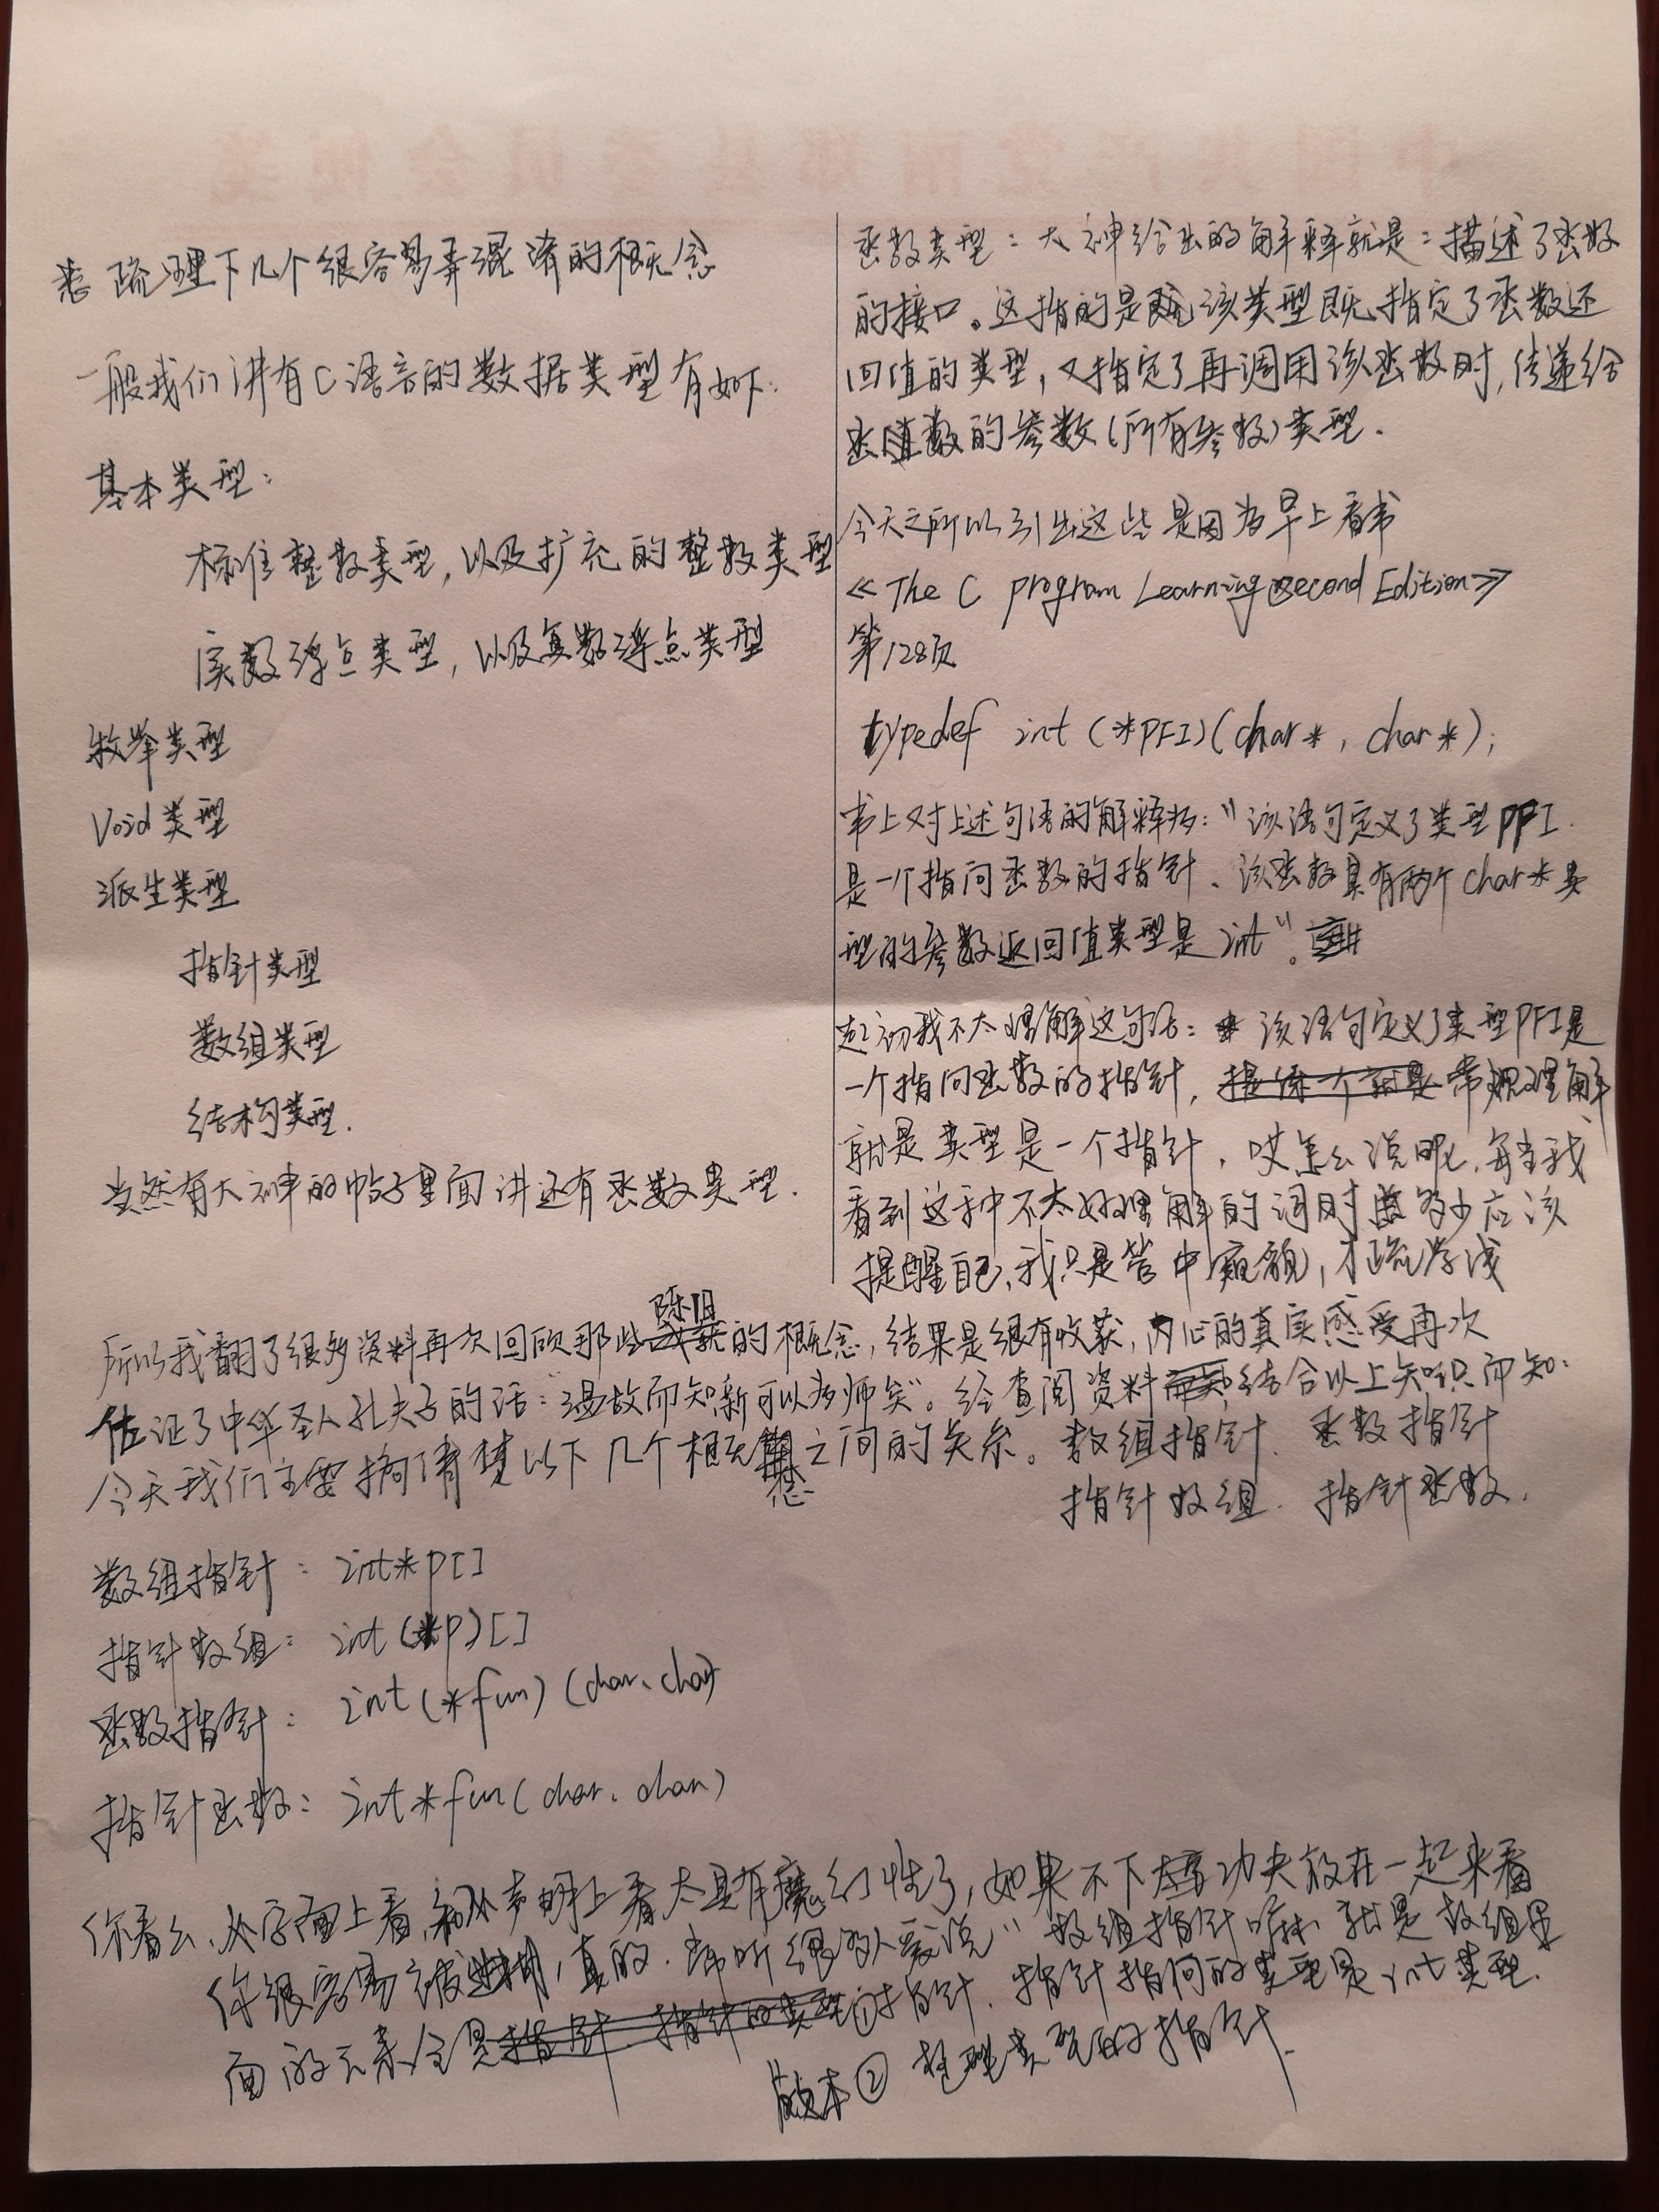 疏理下几个很容易弄混淆的概念
一般我们讲有C语言的数据类型有如下:
基本类型:
标准整数类型,以及扩充的整数类型
实数浮点类型,以及复数浮点类型
枚举类型
Void类型
派生类型
指针类型
数组类型
结构类型.
当然有大神的帖子里面讲还有函数类型.
函数类型:大神给出的解释就是:描述了函数
的接口。这指的是该类型既指定了函数还
回值的类型,又指定了再调用该函数时,传递给
函数的参数(所有参数)类型.
今天之所以引出这些是因为早上看书
《The C program Learning Second Edition》
第128页
typedef int (*PFI)(char*, char*);
书上对上述句语的解释为:"该语句定义了类型PFI
是一个指向函数的指针、该函数具有两个char*类
型的参数返回值类型是int"。
起初我不太理解这句话:该语句定义了类型PFI是
一个指向函数的指针,常规理解
就是类型是一个指针,哎怎么说呢,每当我
看到这种不太好理解的词时多少应该
提醒自己,我只是管中窥貌,才疏学浅
所以我翻了很多资料再次回顾那些陈旧的概念,结果是很有收获,内心的真实感受再次
佐证了中华圣人孔夫子的话:温故而知新可以为师矣"。经查阅资料结合以上知识而知:
今天我们主要搞清楚以下几个概念之间的关系。数组指针、函数指针
指针数组、指针函数.
数组指针: int*p[]
指针数组: int(*p)[]
函数指针: int(*fun)(char、char)
指针函数: int*fun(char、char)
你看么、从字面上看,和从声明上看太具有魔幻性了,如果不下大功夫放在一起来看
你很容易被迷糊,真的.常听很多人爱说"数组指针嘛就是数组里
面的元素全是①指针.指针指向的类型是int类型.
版本②整型类型的指针.